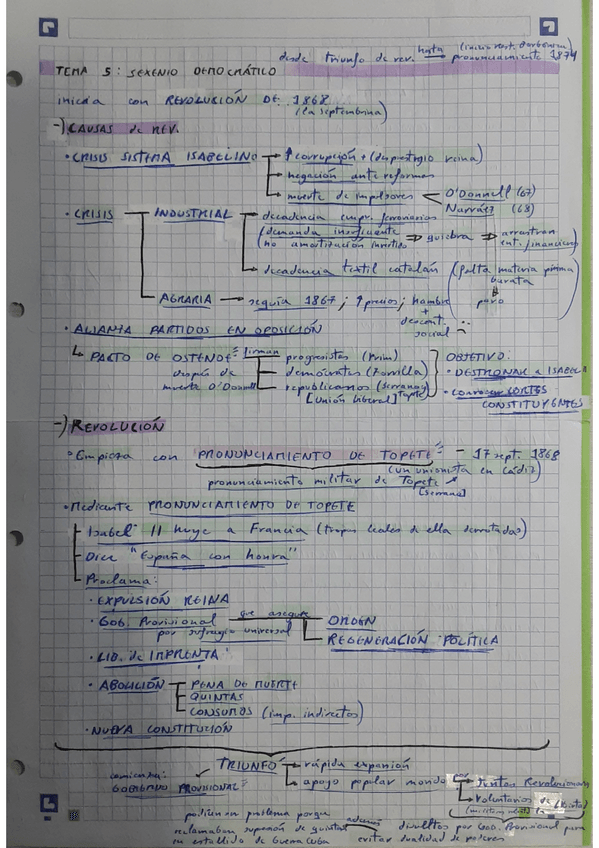 desde triunfo de rev. hasta (inicio rest. borbónica) pronunciamiento 1874
TEMA 5: SEXENIO DEMOCRÁTICO
inicia con REVOLUCIÓN DE 1868
(la septembrina)
-) CAUSAS de REV.
• CRISIS SISTEMA ISABELINO → ↑ corrupción + (desprestigio reina)
→ negación ante reformas
→ muerte de impulsores < O'Donnell (67)
Narváez (68)
• CRISIS INDUSTRIAL → decadencia empr. ferroviarias
(demanda insuficiente ⇒ quiebra ⇒ arrastran
(no amortización invertido ent. financieras)
→ decadencia textil catalán (falta materia prima
barata
paro
AGRARIA → sequía 1867; ↑ precios; hambre
+
descont.
social
• ALIANZA PARTIDOS EN OPOSICIÓN
↳ PACTO DE OSTENDE firman progresistas (Prim) OBJETIVO:
después de demócratas (Zorrilla) • DESTRONAR a ISABEL
muerte O'Donnell republicanos (Serrano y Topete) • convocar CORTES
[Unión liberal] CONSTITUYENTES
-) REVOLUCIÓN
• Empieza con PRONUNCIAMIENTO DE TOPETE - 17 sept. 1868
(un unionista en Cádiz)
pronunciamiento militar de Topete
[Serrano]
• Mediante PRONUNCIAMIENTO DE TOPETE
Isabel II huye a Francia (tropas leales de ella derrotadas)
Dice "España con honra"
Proclama:
• EXPULSIÓN REINA
• Gob. Provisional que asegure ORDEN
por sufragio universal REGENERACIÓN POLÍTICA
• LIB. de IMPRENTA
• ABOLICIÓN PENA DE MUERTE
QUINTAS
CONSUMOS (imp. indirectos)
• NUEVA CONSTITUCIÓN
TRIUNFO → rápida expansión
comienza: → apoyo popular por → Juntas Revolucionarias
GOBIERNO PROVISIONAL → Voluntarios de libertad
además disueltos por Gob. Provisional para
reclamaban supresión de quintas evitar dualidad de poderes